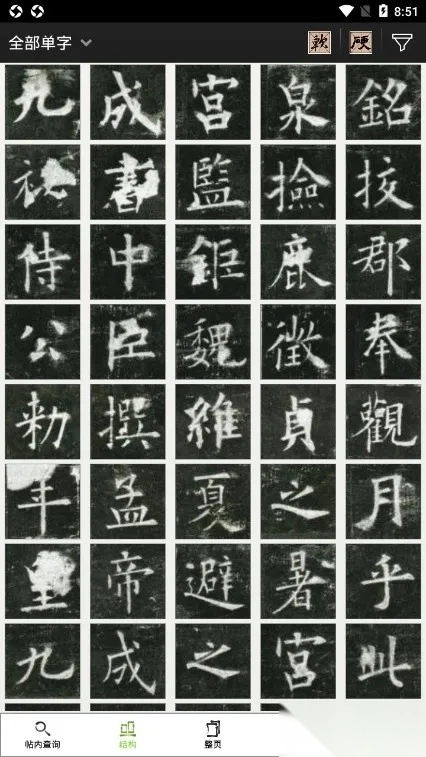 8:51
全部单字 軟 硬
九成宮泉銘
祕書監撿挍
侍中鉅鹿郡
公臣魏徵奉
勑撰維貞觀
年孟夏之月
皇帝避暑乎
九成之宮此
帖内查询 结构 整页